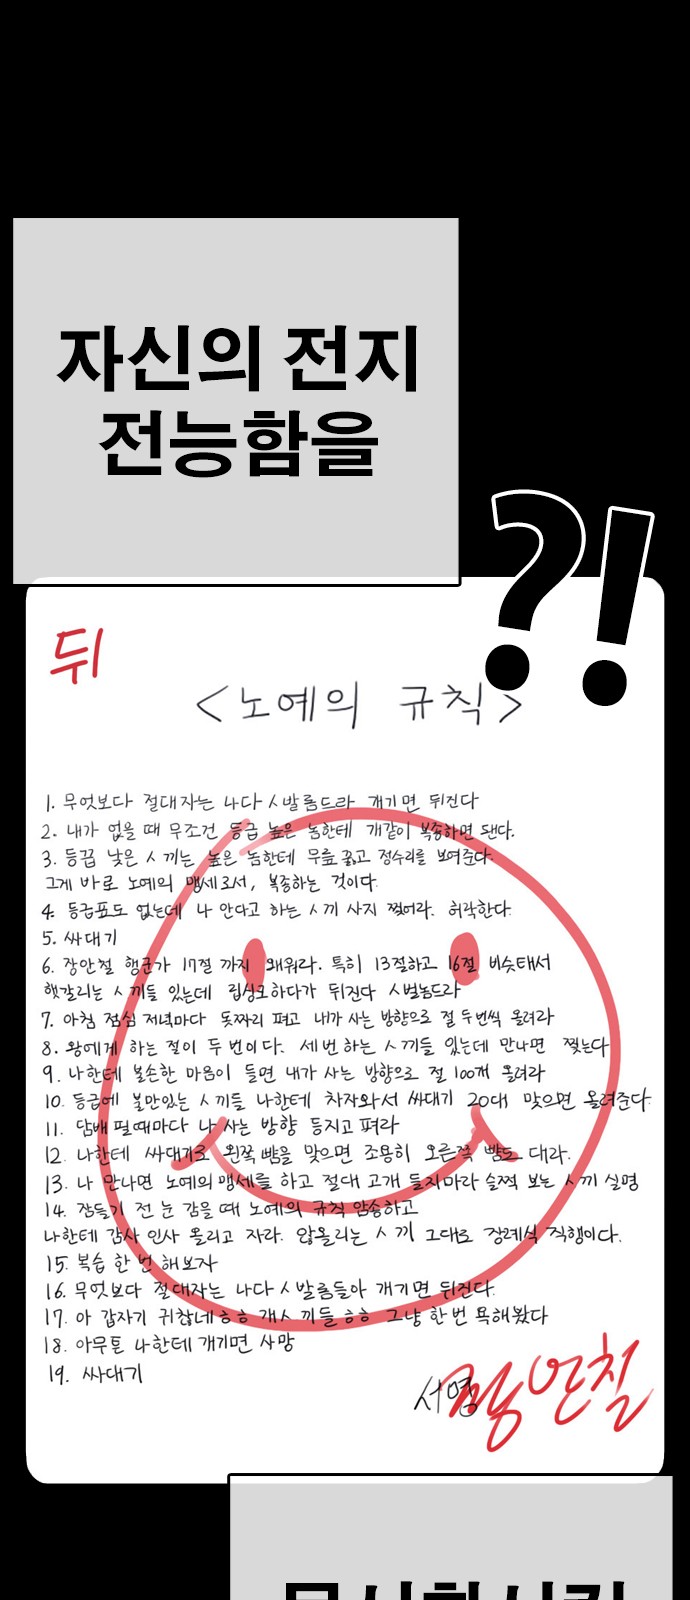 자신의 전지
전능함을
?!
뒤
<노예의 규칙>
1. 무엇보다 절대자는 나다 ㅅ발롬드라 개기면 뒤진다
2. 내가 없을 때 무조건 등급 높은 놈한테 개같이 복종하면 됀다.
3. 등끕 낮은 ㅅ끼는 높은 놈한테 무릎 꿇고 정수리를 보여준다.
그게 바로 노예의 맹세로서, 복종하는 것이다.
4. 등급표도 없는데 나 안다고 하는 ㅅ끼 사지 찢어라. 허락한다.
5. 싸대기
6. 장안철 행군가 17절 까지 왜워라. 특히 13절하고 16절 비슷태서
햇갈리는 ㅅ끼들 있는데 립싱크하다가 뒤진다 ㅅ벌놈드라
7. 아침 점심 저녁마다 돗짜리 펴고 내가 사는 방향으로 절 두번씩 올려라
8. 왕에게 하는 절이 두 번이다. 세 번 하는 ㅅ끼들 있는데 만나면 찢는다
9. 나한테 불손한 마음이 들면 내가 사는 방향으로 절 100개 올려라
10. 등급에 불만있는 ㅅ끼들 나한테 차자와서 싸대기 20대 맞으면 올려준다.
11. 담배 필때마다 나 사는 방향 등지고 펴라
12. 나한테 싸대기로 왼쪽 뺨을 맞으면 조용히 오른쪽 뺨도 대라.
13. 나 만나면 노예의 맹세를 하고 절대 고개 들지마라 슬쩍 보는 ㅅ끼 실명
14. 잠들기 전 눈 감을 때 노예의 규칙 암송하고
나한테 감사 인사 올리고 자라. 않올리는 ㅅ끼 그대로 장례식 직행이다.
15. 복습 한 번 해보자
16. 무엇보다 절대자는 나다 ㅅ발롬들아 개기면 뒤진다.
17. 아 갑자기 귀찮네ㅎㅎ 개ㅅ끼들 ㅎㅎ 그냥 한번 욕해봤다
18. 아무튼 나한테 개기면 사망
19. 싸대기
서명 장안철